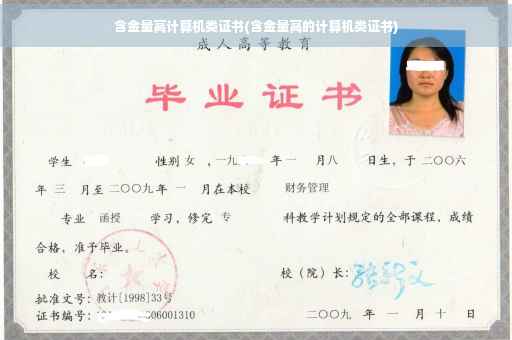 含金量高计算机类证书(含金量高的计算机类证书)
成人高等教育
毕业证书
学生 性别 女 ，一九 年 一 月八 日生，于 二〇〇六
年 三 月至 二〇〇九 年 一 月在本校 财务管理
专业 函授 学习，修完 专 科教学计划规定的全部课程，成绩
合格，准予毕业。
校 名： 校（院）长：
批准文号：教计[1998]33号
证书编号： 06001310 二〇〇九 年 一 月 十 日